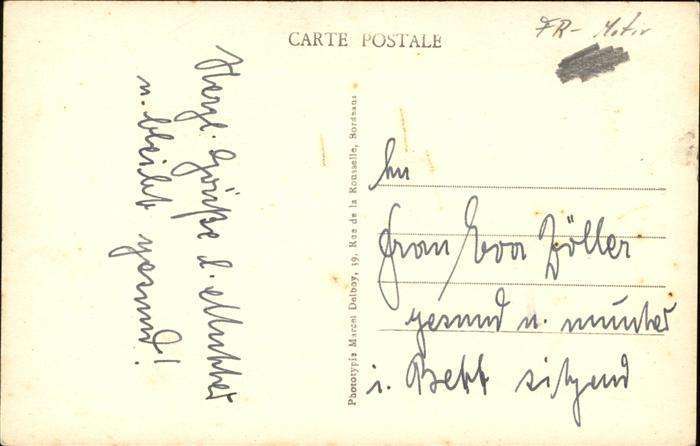 CARTE POSTALE
FR- Motiv
Herzl. Grüße d. Mutter
u. bleibt gesund!
Phototypie Marcel Delboy, 19, Rue de la Rousselle, Bordeaux
An
Frau Eva Zöller
gesund u. munter
i. Bett sitzend